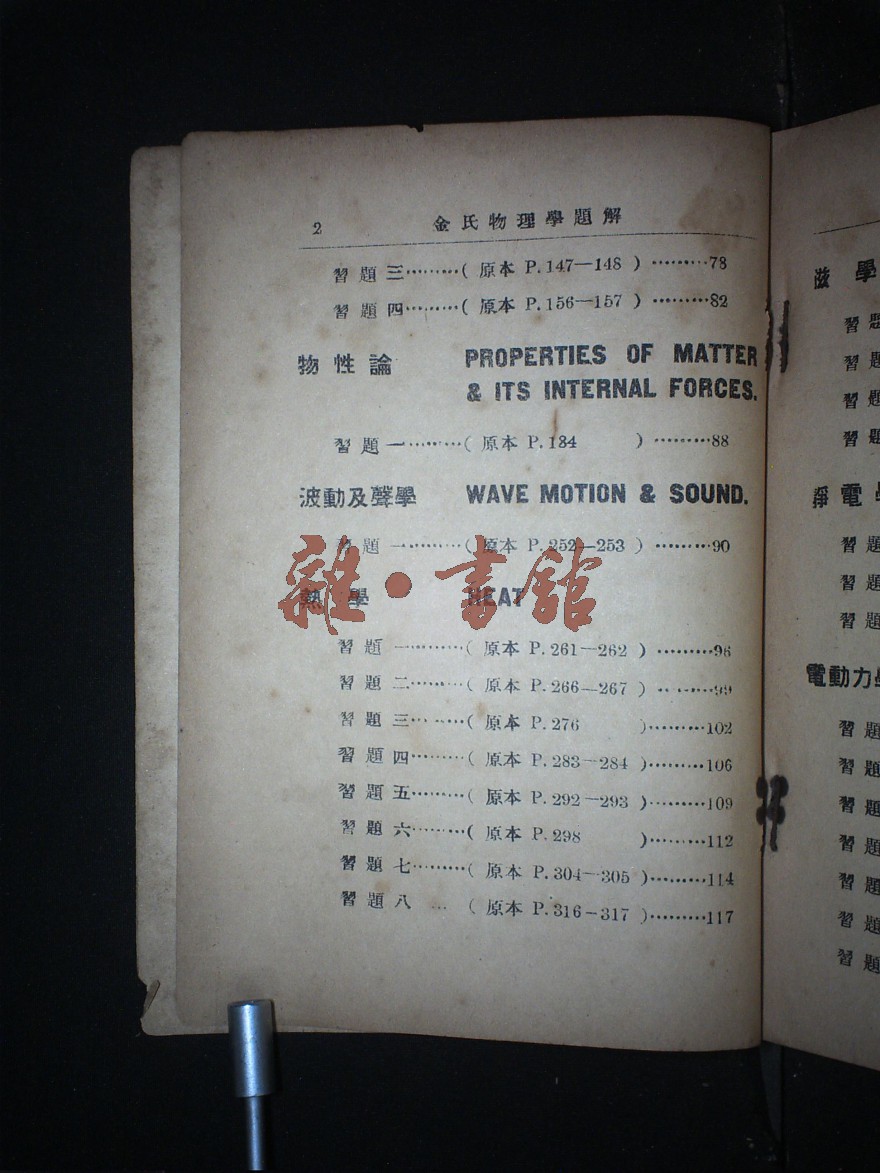 2 金氏物理學題解
習題三………( 原本 P.147—148 ) ………78
習題四………( 原本 P.156—157 ) ………82
物性論 PROPERTIES OF MATTER
& ITS INTERNAL FORCES.
習題一………( 原本 P.184 ) ………88
波動及聲學 WAVE MOTION & SOUND.
習題一………( 原本 P.252—253 ) ………90
雜·書館
熱學 HEAT
習題一………( 原本 P.261—262 ) ………96
習題二………( 原本 P.266—267 ) ………99
習題三………( 原本 P.276 )………102
習題四………( 原本 P.283—284 )………106
習題五………( 原本 P.292—293 )………109
習題六………( 原本 P.298 )………112
習題七………( 原本 P.304—305 )………114
習題八 … ( 原本 P.316—317 )………117
滋學
習題
習題
習題
習題
靜電
習題
習題
習題
電動力
習題
習題
習題
習題
習題
習題
習題